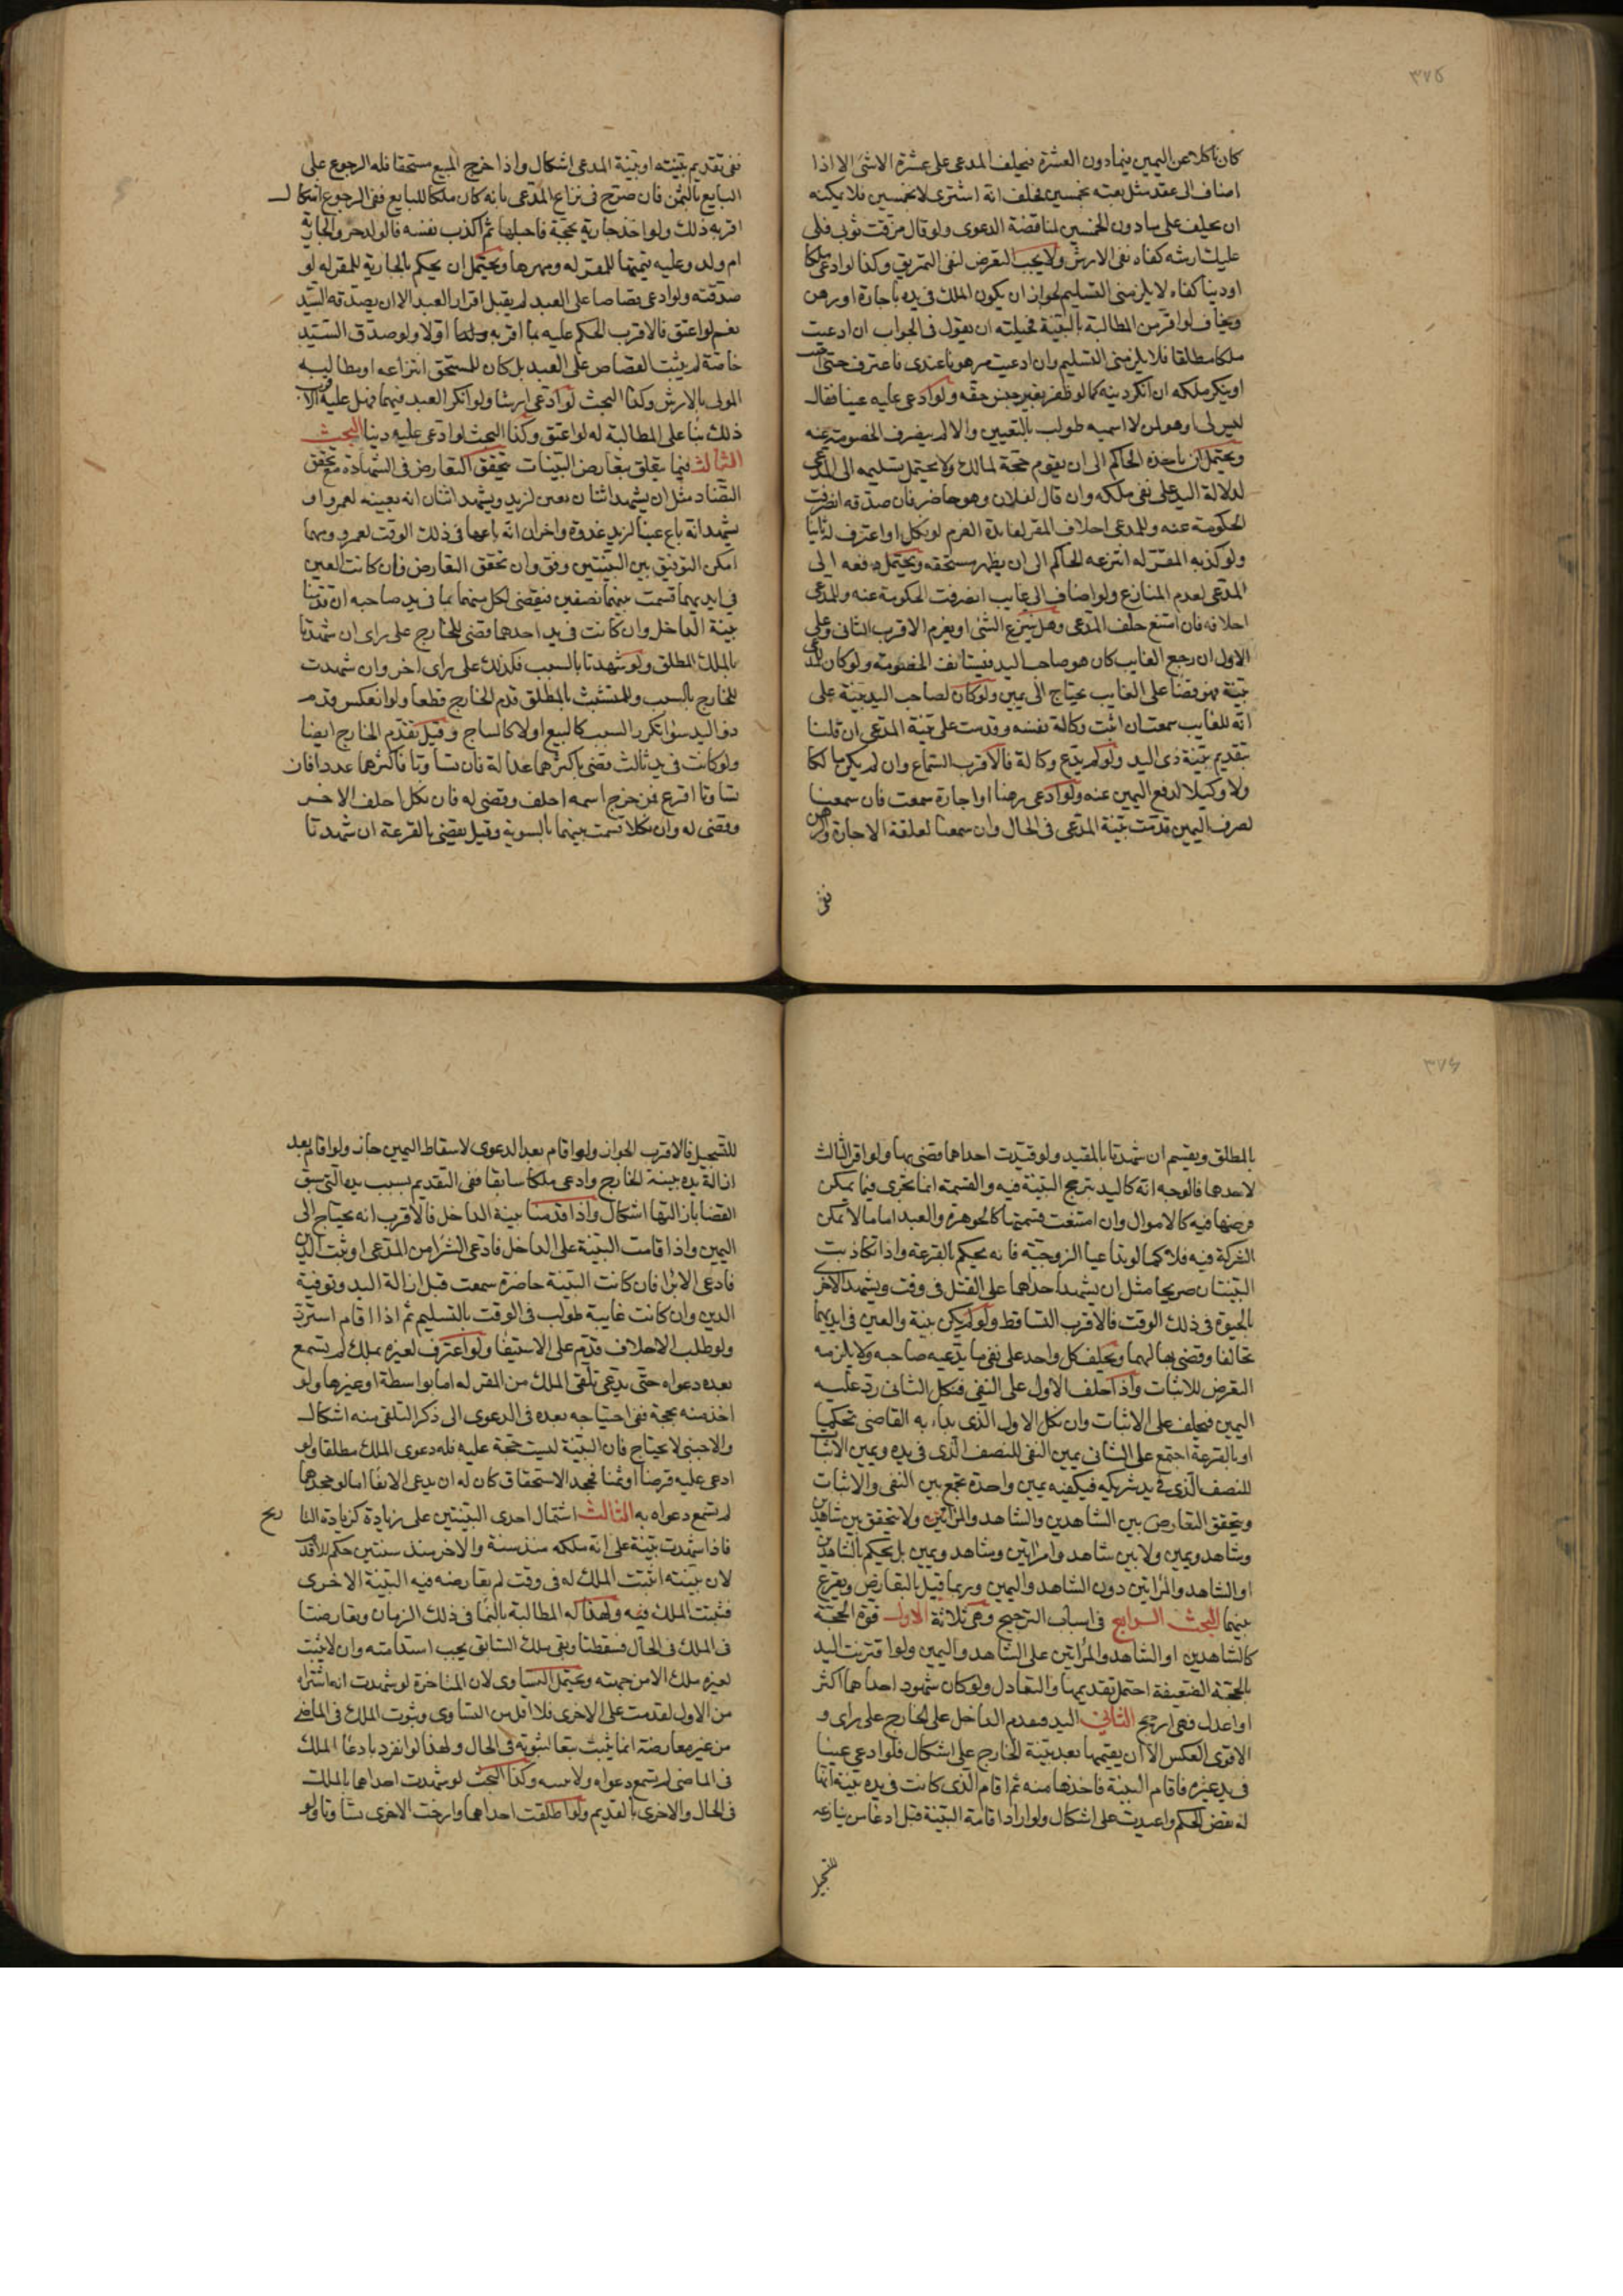 ٣٧٥
كان ناكلا عن اليمين فيما دون العشرة فيحلف المدعى على عشرة الا شئ الا اذا
اضاف الى عقد مثل بعته بخمسين فحلف انه اشترى لا بخمسين فلا يمكنه
ان يحلف على ما دون الخمسين لمناقضة الدعوى ولو قال مزقت ثوبى فلى
عليك ارشه كفاه نفى الارش ولا يجب التعرض لنفى التمزيق وكذا لو ادعى ملكا
او دينا كفاه لا يلزمنى التسليم لجواز ان يكون الملك فى يده باجارة او رهن
ويخاف لو اقر من المطالبة بالبينة فحيلته ان يقول فى الجواب ان ادعيت
ملكا مطلقا فلا يلزمنى التسليم وان ادعيت مرهونا عندى فاعترف حتى اجيب
او ينكر ملكه ان انكر دينه كما لو ظفر بغير جنس حقه ولو ادعى عليه عينا فقال
ليس لى او هو لمن لا اسميه طولب بالتعيين والا لم يصرف الخصومة عنه
ويحتمل ان ياخذه الحاكم الى ان يقوم حجة لمالك ولا يحتمل تسليمه الى المدعى
لدلالة اليد على نفى ملكه وان قال لفلان وهو حاضر فان صدقه انصرفت
الحكومة عنه وللمدعى احلاف المقر لفايدة الغرم لو نكل او اعترف له ثانيا
ولو كذبه المقر له انتزعه الحاكم الى ان يظهر مستحقه ويحتمل دفعه الى
المدعى لعدم المنازع ولو اضاف الى غايب انصرفت الحكومة عنه وللمدعى
احلافه فان امتنع حلف المدعى وهل ينتزع الشئ او يغرم الاقرب الثانى وعلى
الاول ان رجع الغايب كان هو صاحب اليد فيستانف الخصومة ولو كان للمدعى
بينة فهو قضا على الغايب يحتاج الى يمين ولو كان لصاحب اليد بينة على
انه للغايب سمعت ان اثبت وكالة نفسه وقدمت على بينة المدعى ان قلنا
بتقديم بينة ذى اليد ولو لم يدع وكالة فالاقرب السماع وان لم يكن مالكا
ولا وكيلا لدفع اليمين عنه ولو ادعى رهنا او اجارة سمعت فان سمعنا
لصرف اليمين قدمت بينة المدعى فى الحال وان سمعنا لعلقة الاجارة والرهن
ففى
ففى تقديم بينته او بينة المدعى اشكال واذا خرج المبيع مستحقا فله الرجوع على
البايع بالثمن فان صرح فى نزاع المدعى بانه كان ملكا للبايع ففى الرجوع اشكال
اقربه ذلك ولو اخذ جارية بحجة فاحبلها ثم اكذب نفسه فالولد حر والجارية
ام ولد وعليه قيمتها للمقر له ومهرها ويحتمل ان يحكم بالجارية للمقر له لو
صدقته ولو ادعى قصاصا على العبد لم يقبل اقرار العبد الا ان يصدقه السيد
نعم لو اعتق فالاقرب الحكم عليه بما اقر به اولا ولو صدق السيد
خاصة لم يثبت القصاص على العبد بل كان للمستحق انتزاعه او مطالبة
المولى بالارش وكذا البحث لو ادعى ارشا ولو انكر العبد فيهما فهل عليه الاقرب
ذلك بنا على المطالبة له لو اعتق وكذا البحث لو ادعى عليه دينا البحث
الثالث فيما يتعلق بتعارض البينات يتحقق التعارض فى الشهادة مع تحقق
التضاد مثل ان يشهد اثنان بعين لزيد ويشهد اثنان انه بعينه لعمرو او
يشهد انه باع عينا لزيد غدوة واخران انه باعها فى ذلك الوقت لعمرو ومهما
امكن التوفيق بين البينتين وفق وان تحقق التعارض فان كانت العين
فى ايديهما قسمت بينهما نصفين فيقضى لكل منهما بما فى يد صاحبه ان قدمنا
بينة الداخل وان كانت فى يد احدهما قضى للخارج على راى ان شهدتا
بالملك المطلق ولو شهدتا بالسبب فكذلك على راى اخر وان شهدت
للخارج بالسبب وللمتشبث بالمطلق قدم الخارج قطعا ولو انعكس قدم
ذو اليد سوا تكرر السبب كالبيع اولا كالنساج وقيل تقدم الخارج ايضا
ولو كانت فى يد ثالث قضى باكثرهما عدالة فان تساوتا فاكثرهما عددا فان
تساوتا اقرع فمن خرج اسمه احلف وقضى له فان نكل احلف الاخر
وقضى له وان نكلا قسمت بينهما بالسوية وقيل يقضى بالقرعة ان شهدتا
٣٧٦
بالمطلق ويقسم ان شهدتا بالمقيد ولو قيدت احداهما قضى بها ولو اقر الثالث
لاحدهما فالوجه انه كاليد يترجح البينة فيه والقسمة انما تجرى فيما يمكن
فرضها فيه كالاموال وان امتنعت قسمتها كالجوهرة والعبد اما ما لا يمكن
الشركة فيه فلا كما لو تداعيا الزوجية فانه يحكم بالقرعة واذا تكاذبت
البينتان صريحا مثل ان يشهد احداهما على القتل فى وقت ويشهد الاخرى
بالحيوة فى ذلك الوقت فالاقرب التساقط ولو لم يكن بينة والعين فى ايديهما
تحالفا وقضى بها لهما ويحلف كل واحد على نفى ما يدعيه صاحبه ولا يلزمه
التعرض للاثبات واذا حلف الاول على النفى فنكل الثانى رد عليه
اليمين فيحلف على الاثبات وان نكل الاول الذى بداء به القاضى تحكما
او بالقرعة اجتمع على الثانى يمين النفى للنصف الذى فى يده ويمين الاثبات
للنصف الذى فى يد شريكه فيكفيه يمين واحدة تجمع بين النفى والاثبات
ويتحقق التعارض بين الشاهدين والشاهد والمراتين ولا يتحقق بين شاهدين
وشاهد ويمين ولا بين شاهد وامراتين وشاهد ويمين بل يحكم بالشاهدين
او الشاهد والمراتين دون الشاهد واليمين وربما قيل بالتعارض ويقرع
بينهما البحث الرابع فى اسباب الترجيح وهى ثلاثة الاول قوة الحجة
كالشاهدين او الشاهد والمراتين على الشاهد واليمين ولو اقترنت اليد
بالحجة الضعيفة احتمل تقديمها والتعادل ولو كان شهود احداهما اكثر
او اعدل فهى ارجح الثانى اليد فيقدم الداخل على الخارج على راى و
الاقوى العكس الا ان يقيمها بعد بينة الخارج على اشكال فلو ادعى عينا
فى يد غيره فاقام البينة فاخذها منه ثم اقام الذى كانت فى يده بينة انها
له نقض الحكم واعيدت على اشكال ولو اراد اقامة البينة قبل ادعا من ينازعه
للتسجيل
للتسجيل فالاقرب الجواز ولو اقام بعد الدعوى لاسقاط اليمين جاز ولو اقام بعد
ازالة يده ببينة الخارج وادعى ملكا سابقا ففى التقديم بسبب يده التى سبق
القضا بازالتها اشكال واذا قدمنا بينة الداخل فالاقرب انه يحتاج الى
اليمين واذا قامت البينة على الداخل فادعى الشرا من المدعى او ثبت الدين
فادعى الابرا فان كانت البينة حاضرة سمعت قبل ازالة اليد وتوفية
الدين وان كانت غايبة طولب فى الوقت بالتسليم ثم اذا اقام استرد
ولو طلب الاحلاف قدم على الاستيفا ولو اعترف لغيره بملك لم يسمع
بعده دعواه حتى يدعى تلقى الملك من المقر له اما بواسطة او غيرها ولو
اخذ منه بحجة ففى احتياجه بعده فى الدعوى الى ذكر التلقى منه اشكال
والاجنبى لا يحتاج فان البينة ليست حجة عليه فله دعوى الملك مطلقا ولو
ادعى عليه قرضا او ثمنا فجحد الاستحقاق كان له ان يدعى الايفا اما لو جحدهما
لم تسمع دعواه به الثالث اشتمال احدى البينتين على زيادة كزيادة التا ريخ
فاذا شهدت بينة على انه ملكه منذ سنة والاخر منذ سنتين حكم للاقدم
لان بينته اثبتت الملك له فى وقت لم يعارضه فيه البينة الاخرى
فثبت الملك فيه ولهذا له المطالبة بالنما فى ذلك الزمان وتعارضتا
فى الملك فى الحال فسقطتا وبقى ملك السابق يجب استدامته وان لا يثبت
لغيره ملك الا من جهته ويحتمل التساوى لان المتاخرة لو شهدت انه اشتراه
من الاول لقدمت على الاخرى فلا اقل من التساوى وثبوت الملك فى الماضى
من غير معارضة انما يثبت تبعا لثبوته فى الحال ولهذا لو انفرد بادعا الملك
فى الماضى لم يسمع دعواه ولا بينته وكذا البحث لو شهدت احداهما بالملك
فى الحال والاخرى بالقديم ولو اطلقت احداهما وارخت الاخرى تساوتا ولو